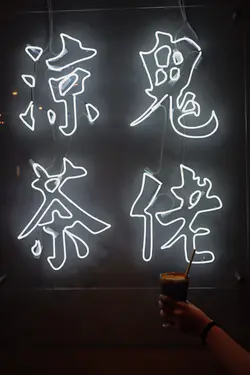 鬼佬
涼茶